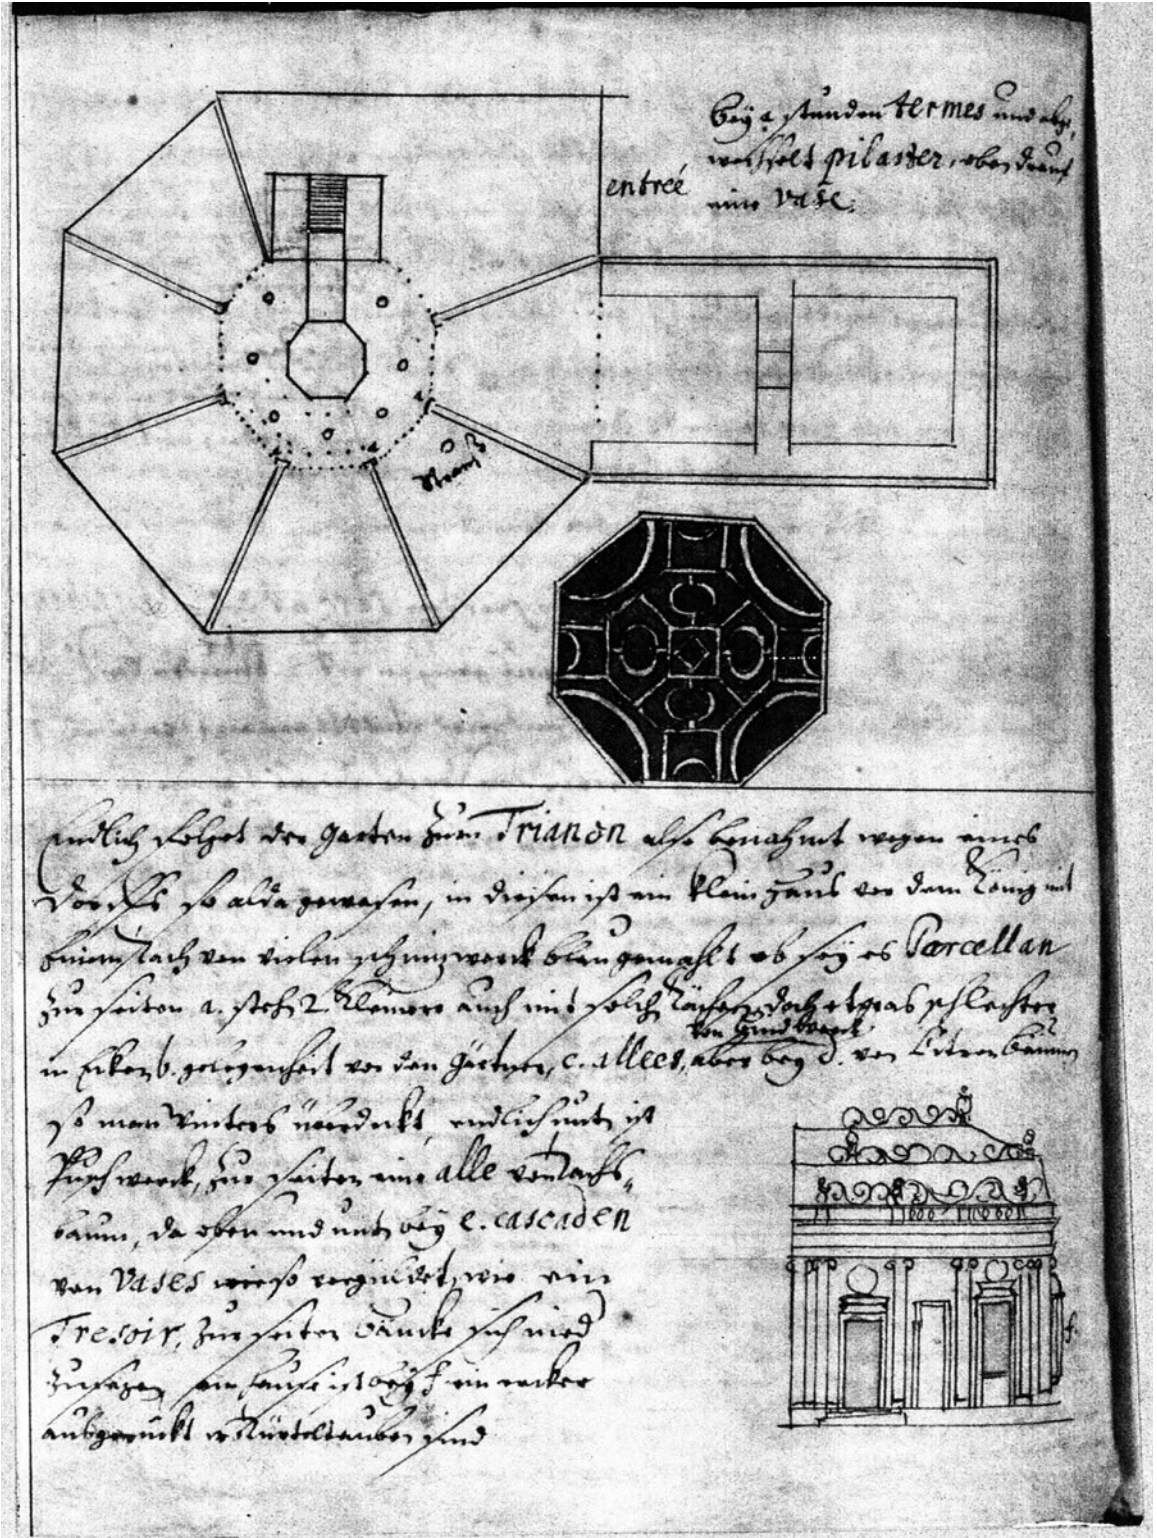 bey a stunden termes und abge,
wechselt pilaster, oben drauf
eine Vase.
entreé
Strauß
Endlich folget der garten zum Trianon also benahmt wegen eines
dorffs so alda gewesen, in diesen ist ein klein haus vor dem König mit
einem dach von vielen schnizwerck blau gemahlt ob sey es Porcellan
zur seiten a. stehn 2 kleinere auch mit solchn dächern doch etwas schlechter
von grind werck
in Ecken b. gelegenheit vor den gärtner, c. allees, aber bey d. von Citronbäumen
so man winters überdekt, endlich untn ist
Puschwerck, zur seiten eine alle von dachs„
baum, da oben und untn bey e. cascaden
von Vases weiss vergüldet, wie ein
Tresoir, zur seiten bäncke sich nied
zusezen, am hause ist bey f ein ercker
ausgeruckt wo Turteltauben sind
f.